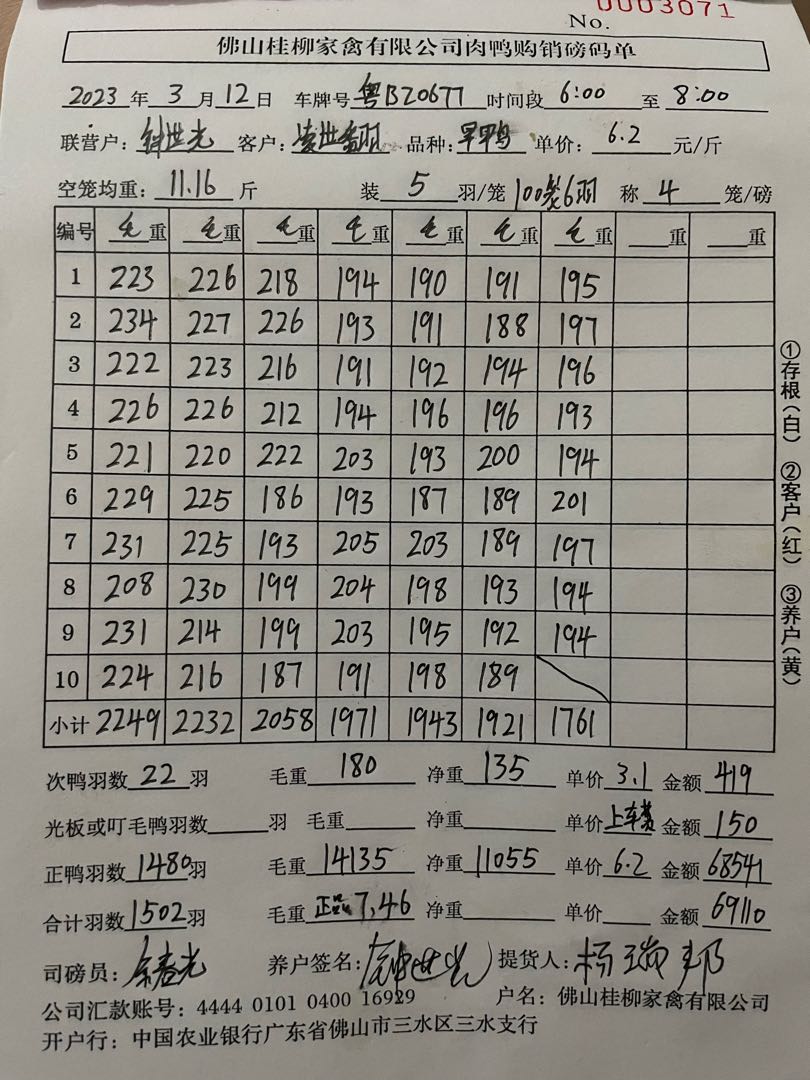 0003071
No.
佛山桂柳家禽有限公司肉鸭购销磅码单
2023 年 3 月 12 日 车牌号 粤BZ0677 时间段 6:00 至 8:00
联营户: 钟世光 客户: 凌世 品种: 旱鸭 单价: 6.2 元/斤
空笼均重: 11.16 斤 装 5 羽/笼 100笼6羽 称 4 笼/磅
编号 毛重 毛重 毛重 毛重 毛重 毛重 毛重 重 重
1 223 226 218 194 190 191 195
2 234 227 226 193 191 188 197
3 222 223 216 191 192 194 196
4 226 226 212 194 196 196 193
5 221 220 222 203 193 200 194
6 229 225 186 193 187 189 201
7 231 225 193 205 203 189 197
8 208 230 199 204 198 193 194
9 231 214 199 203 195 192 194
10 224 216 187 191 198 189
小计 2249 2232 2058 1971 1943 1921 1761
次鸭羽数 22 羽 毛重 180 净重 135 单价 3.1 金额 419
光板或叮毛鸭羽数 羽 毛重 净重 单价 上车费 金额 150
正鸭羽数 1480 羽 毛重 14135 净重 11055 单价 6.2 金额 68541
合计羽数 1502 羽 毛重 正品 7.46 净重 单价 金额 69110
司磅员: 余春光 养户签名: 钟世光 提货人: 杨瑞邦
公司汇款账号: 4444 0101 0400 16929 户名: 佛山桂柳家禽有限公司
开户行: 中国农业银行广东省佛山市三水区三水支行
①存根(白) ②客户(红) ③养户(黄)